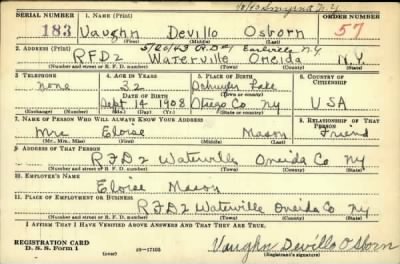 10/40 Smyrna N.Y.
SERIAL NUMBER 1. NAME (Print) ORDER NUMBER
183 Vaughn Devillo Osborn 57
(First) (Middle) (Last)
2. ADDRESS (Print) 5/20/43 R.D#1 Earlville N.Y.
RFD2 Waterville Oneida N.Y.
(Number and street or R. F. D. number) (Town) (County) (State)
3. TELEPHONE 4. AGE IN YEARS 5. PLACE OF BIRTH 6. COUNTRY OF CITIZENSHIP
none 32 Schuyler Lake
DATE OF BIRTH (Town or county)
Sept 14 1908 Otsego Co NY USA
(Exchange) (Number) (Mo.) (Day) (Yr.) (State or country)
7. NAME OF PERSON WHO WILL ALWAYS KNOW YOUR ADDRESS 8. RELATIONSHIP OF THAT PERSON
Mrs Eloise Mason Friend
(Mr., Mrs., Miss) (First) (Middle) (Last)
9. ADDRESS OF THAT PERSON
RFD2 Waterville Oneida Co NY
(Number and street or R. F. D. number) (Town) (County) (State)
10. EMPLOYER'S NAME
Eloise Mason
11. PLACE OF EMPLOYMENT OR BUSINESS
RFD2 Waterville Oneida Co NY
(Number and street or R. F. D. number) (Town) (County) (State)
I AFFIRM THAT I HAVE VERIFIED ABOVE ANSWERS AND THAT THEY ARE TRUE.
REGISTRATION CARD
D. S. S. Form 1 (over) 16—17105 Vaughn Devillo Osborn
(Registrant's signature)